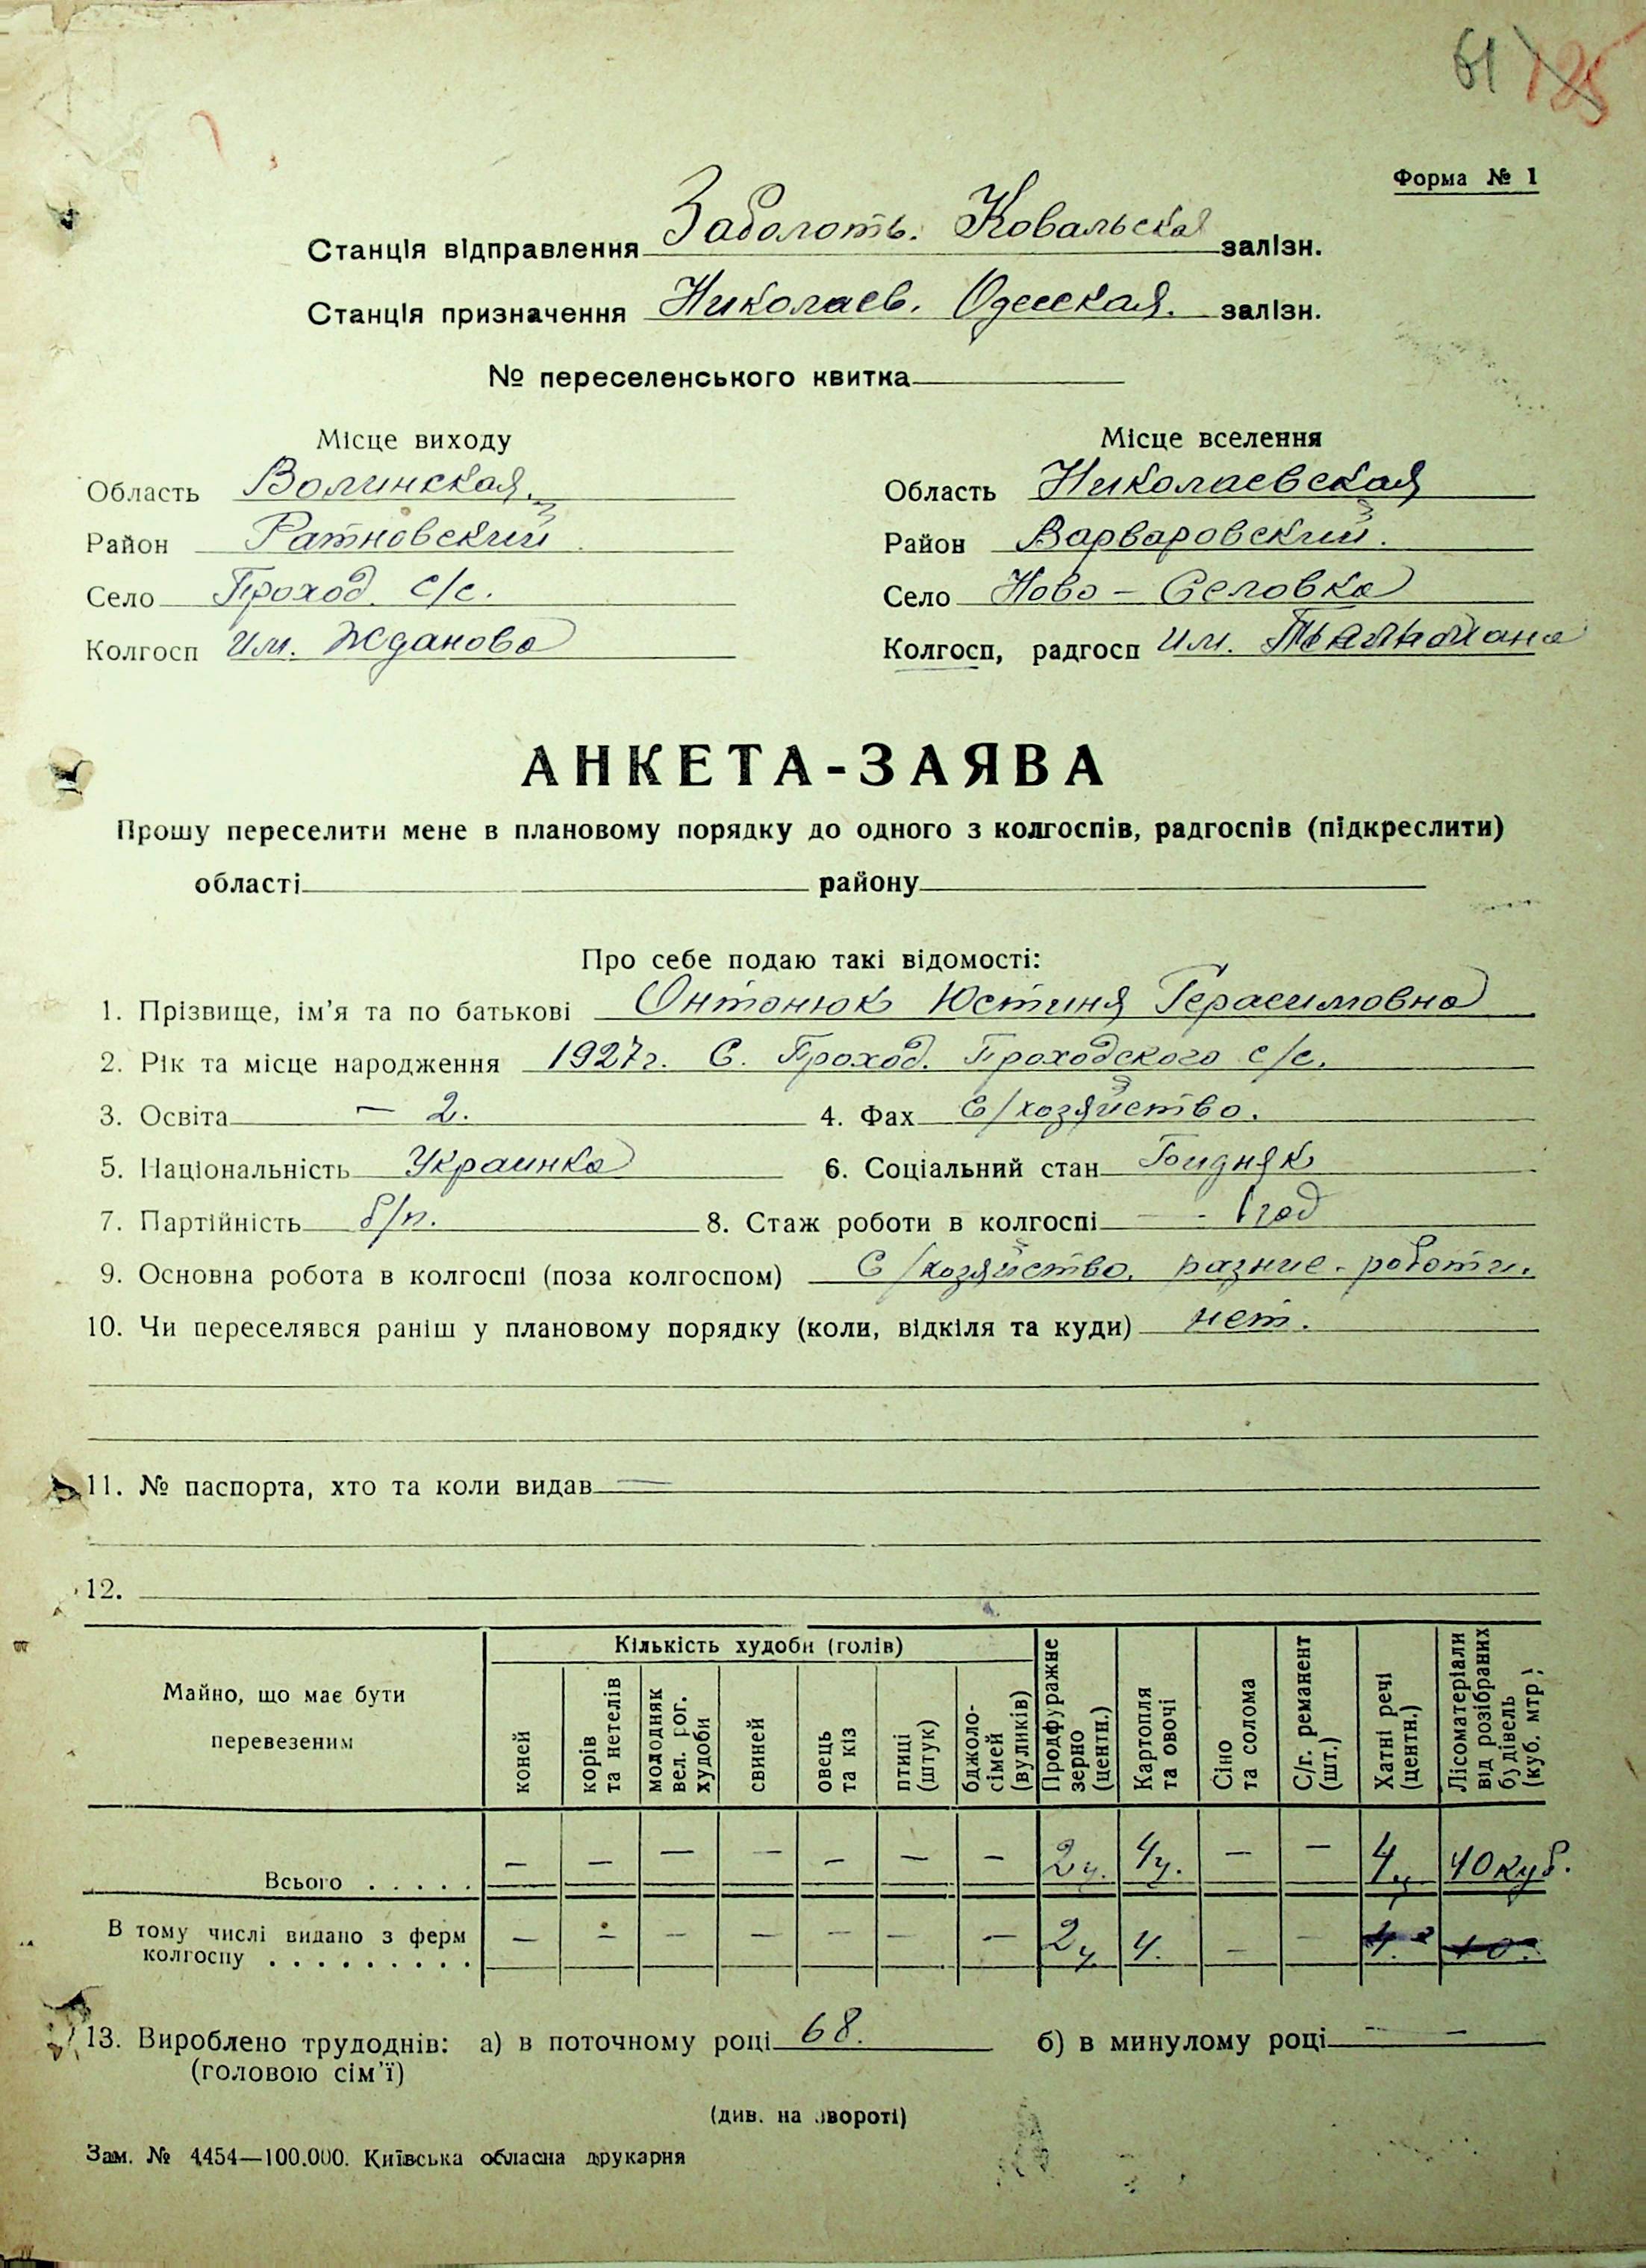 61 125
Форма № 1
Станція відправлення Заболоть. Ковальская залізн.
Станція призначення Николаев. Одесская. залізн.
№ переселенського квитка
Місце виходу Місце вселення
Область Волинская. Область Николаевская
Район Ратновский Район Варваровский.
Село Проход с/с. Село Ново-Селовка
Колгосп им. Жданова Колгосп, радгосп им.
АНКЕТА-ЗАЯВА
Прошу переселити мене в плановому порядку до одного з колгоспів, радгоспів (підкреслити)
області району
Про себе подаю такі відомості:
1. Прізвище, ім'я та по батькові Онтонюк Юстиня Герасимовна
2. Рік та місце народження 1927г. С. Проход. Проходского с/с.
3. Освіта — 2. 4. Фах С/хозяйство.
5. Національність Украинка 6. Соціальний стан Бидняк
7. Партійність б/п. 8. Стаж роботи в колгоспі — 1 год
9. Основна робота в колгоспі (поза колгоспом) С/хозяйство. разние-роботи.
10. Чи переселявся раніш у плановому порядку (коли, відкіля та куди) нет.
11. № паспорта, хто та коли видав —
12.
Майно, що має бути перевезеним
Кількість худоби (голів)
коней
корів та нетелів
молодняк вел. рог. худоби
свиней
овець та кіз
птиці (штук)
бджоло-сімей (вуликів)
Продфуражне зерно (центн.)
Картопля та овочі
Сіно та солома
С/г. реманент (шт.)
Хатні речі (центн.)
Лісоматеріали від розібраних будівель (куб. мтр)
Всього . . . . . — — — — — — — 2ц. 4ц. — — 4ц 40 куб.
В тому числі видано з ферм
колгоспу . . . . . . . . . — — — — — — — 2ц 4. — — 4.
13. Вироблено трудоднів: а) в поточному році 68. б) в минулому році — —
(головою сім'ї)
(див. на звороті)
Зам. № 4454—100.000. Київська обласна друкарня